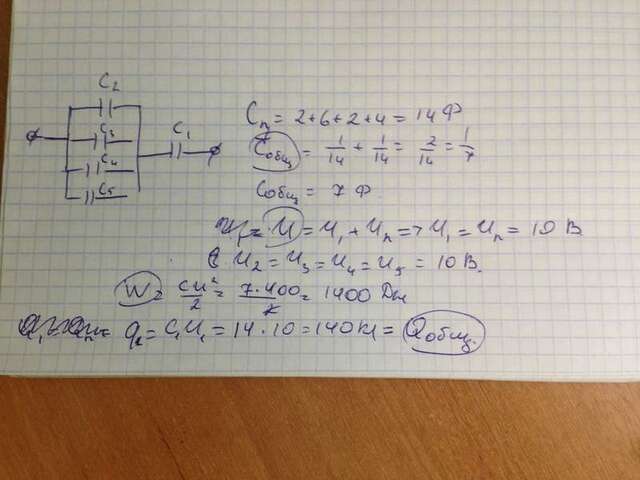 C2
C3
C4
C5
C1
Cп = 2+6+2+4 = 14 Ф
Cобщ = 1/14 + 1/14 = 2/14 = 1/7
Cобщ = 7 Ф.
U = U1 + Uп => U1 = Uп = 10 В.
U2 = U3 = U4 = U5 = 10 В.
W = CU²/2 = 7·400/2 = 1400 Дж
q1 = C1U1 = 14·10 = 140 Кл = Qобщ.